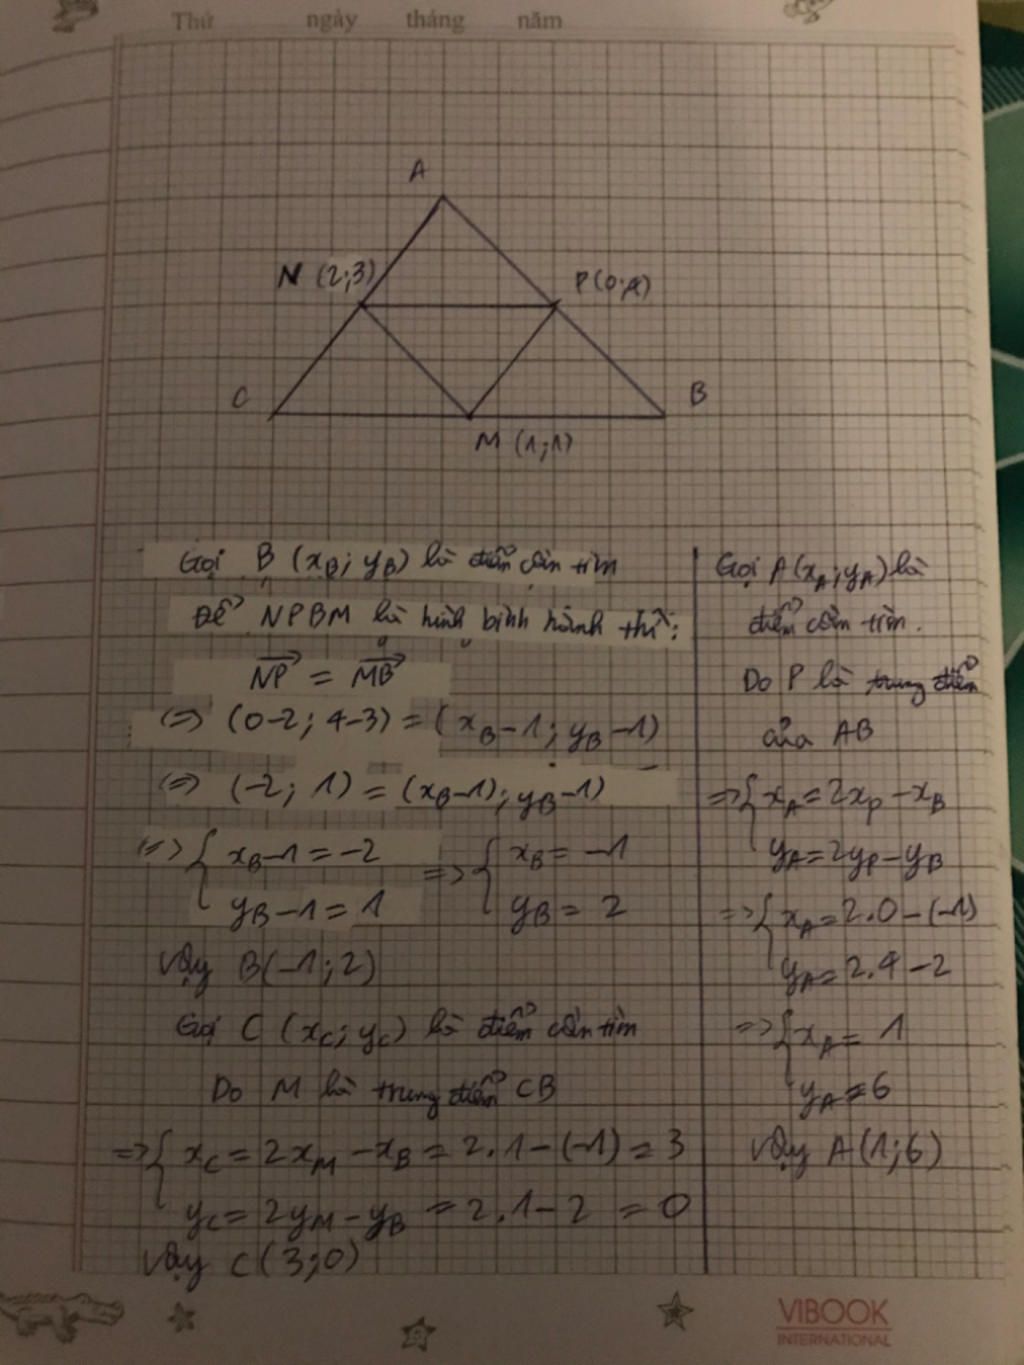 Thứ ngày tháng năm
A
N (2;3)
P(0;4)
C
B
M (1;1)
Gọi B (xB; yB) là điểm cần tìm
Để NPBM là hình bình hành thì:
NP = MB
<=> (0-2; 4-3) = (xB-1; yB-1)
<=> (-2; 1) = (xB-1); yB-1)
<=> { xB-1=-2
yB-1=1
=> { xB = -1
yB = 2
Vậy B(-1;2)
Gọi C (xC; yC) là điểm cần tìm
Do M là trung điểm CB
=> { xC = 2xM - xB = 2.1-(-1) = 3
yC = 2yM - yB = 2.1-2 = 0
Vậy C(3;0)
Gọi A(xA; yA) là
điểm cần tìm.
Do P là trung điểm
của AB
=> { xA = 2xP - xB
yA = 2yP - yB
=> { xA = 2.0-(-1)
yA = 2.4-2
=> { xA = 1
yA = 6
Vậy A(1;6)
VIBOOK
INTERNATIONAL